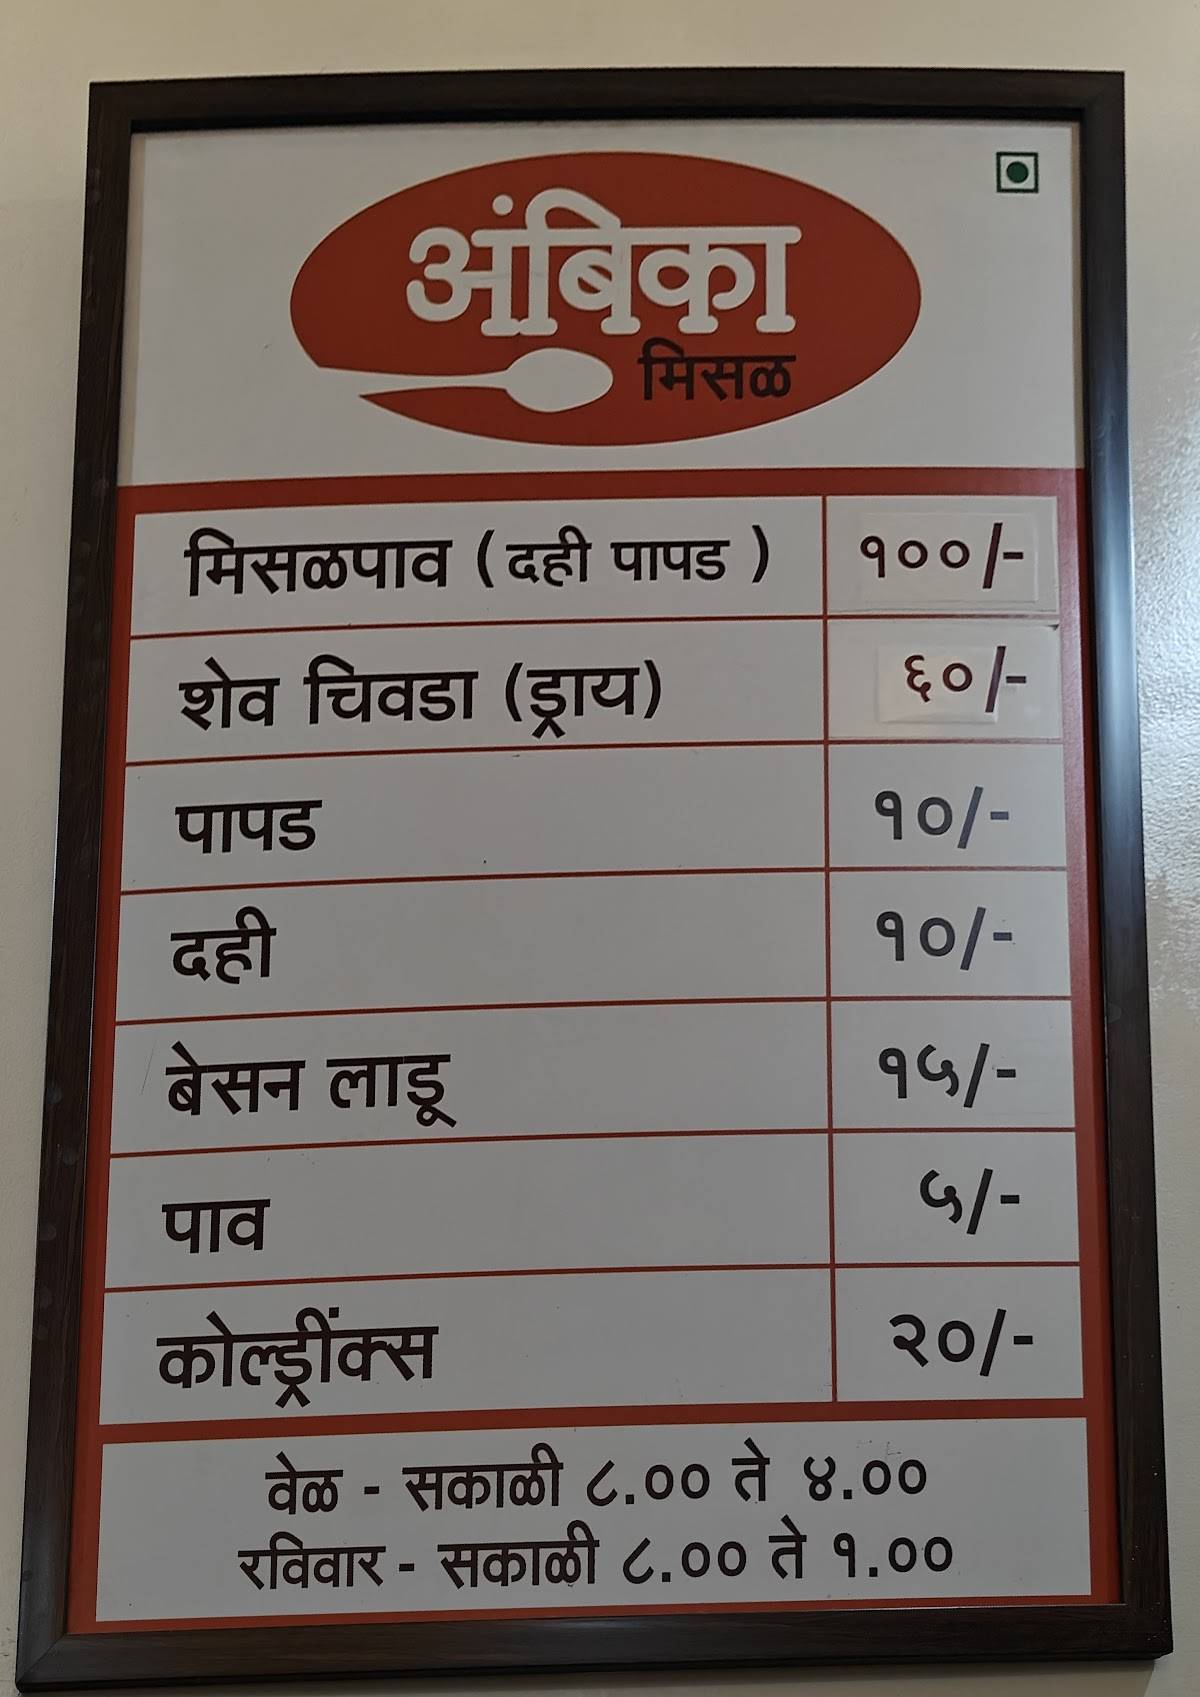 अंबिका
मिसळ
मिसळपाव (दही पापड) १००/-
शेव चिवडा (ड्राय) ६०/-
पापड १०/-
दही १०/-
बेसन लाडू १५/-
पाव ५/-
कोल्ड्रींक्स २०/-
वेळ - सकाळी ८.०० ते ४.००
रविवार - सकाळी ८.०० ते १.००